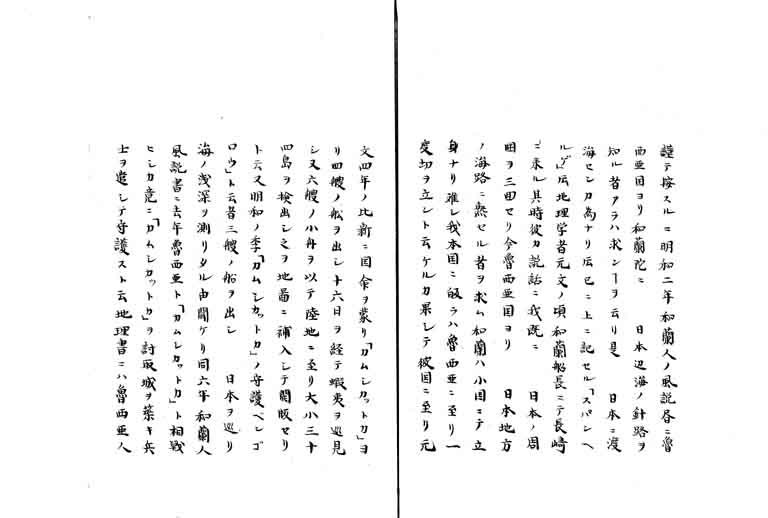 謹テ按スルニ明和二年和蘭人ノ風説書ニ魯
西亜国ヨリ和蘭陀ニ　日本辺海ノ針路ヲ
知ル者アラハ求ンヿヲ云リ是　日本ニ渡
海センカ為ナリ伝ニ上ニ記セル「スパンヘ
ルゲ」伝地理学者元文ノ頃和蘭船長ニテ長崎
ニ来ル其時彼カ説話ニ我既ニ　日本ノ周
囲ヲ三回セリ今魯西亜国ヨリ　日本地方
ノ海路ニ熟セル者ヲ求ム和蘭ハ小国ニテ立
身ナリ難シ我本国ニ皈ラハ魯西亜ニ至リ一
度功ヲ立ント云ケルカ果シテ彼国ニ至リ元
文四年ノ比新ニ国命ヲ蒙リ「カムシカットカ」ヨ
リ四艘ノ舩ヲ出シ十六日ヲ経テ蝦夷ヲ巡見
シ又六艘ノ小舟ヲ以テ陸地ニ至リ大小三十
四島ヲ検出シ之ヲ地啚ニ補入シテ開版セリ
ト云又明和ノ季「カムシカットカ」ノ守護ベンゴ
ロウ」ト云者三艘ノ船ヲ出シ　日本ヲ巡リ
海ノ浅深ヲ測リタル由聞ケリ同六年和蘭人
風説書ニ去年魯西亜ト「カムシカットカ」ト相戦
ヒシカ竟ニ「カムシカットカ」ヲ討取城ヲ築キ兵
士ヲ遣シテ守護スト云地理書ニハ魯西亜人